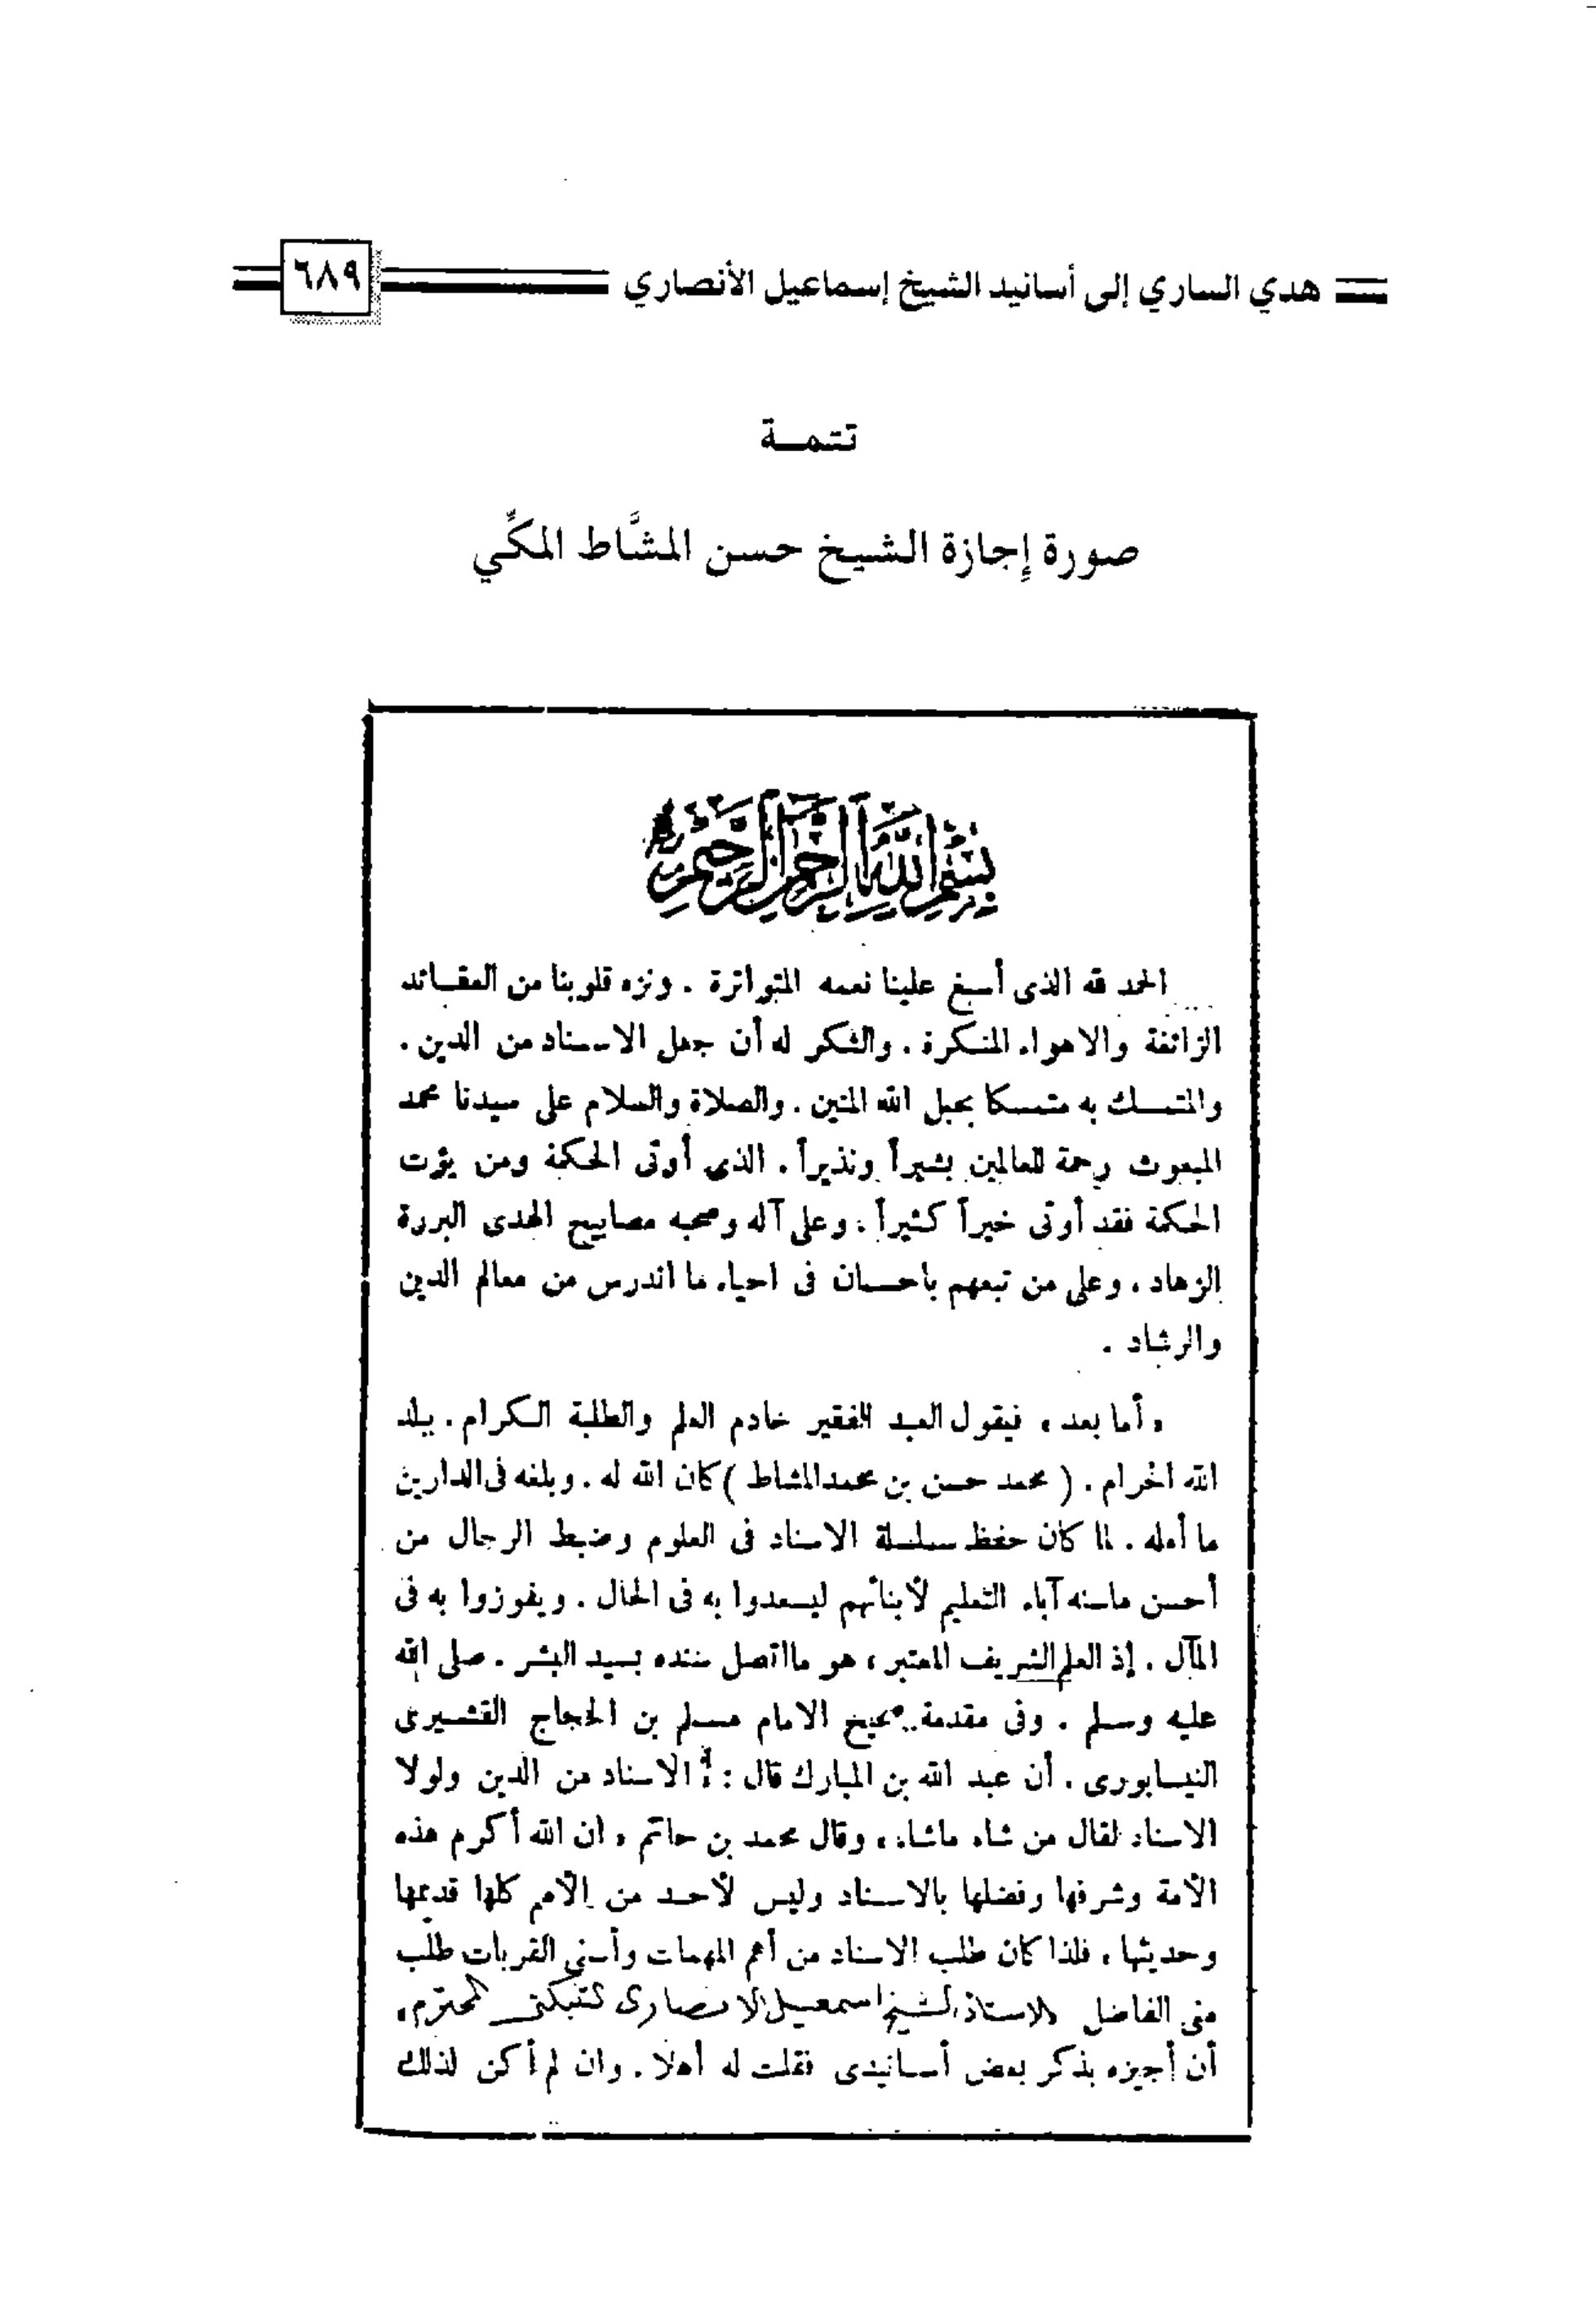 هدي الساري إلى أسانيد الشيخ إسماعيل الأنصاري ٦٨٩
تتمـة
صورة إجازة الشيخ حسن المشَّاط المكِّي
بسم الله الرحمن الرحيم
الحمد لله الذى أسبغ علينا نعمه المتواترة . ونزه قلوبنا من العقـائد
الزائفة والاهواء المنكرة . والشكر له أن جعل الاسناد من الدين .
والمتمسك به متمسكا بحبل الله المتين . والصلاة والسلام على سيدنا محمد
المبعوث رحمة للعالمين بشيراً ونذيراً . الذى أوتى الحكمة ومن يؤت
الحكمة فقد أوتى خيراً كثيراً ، وعلى آله وصحبه مصابيح الهدى البررة
الزهاد ، وعلى من تبعهم باحسان فى احياء ما اندرس من معالم الدين
والرشاد .
، أما بعد ، فيقول العبد الفقير خادم العلم والطلبة الكرام . ببلد
الله الحرام . ( محمد حسن بن محمد المشاط ) كان الله له . وبلغه فى الدارين
ما أمله . لما كان حفظ سلسلة الاسناد فى العلوم وضبط الرجال من
أحسن ماسنه آباء التعليم لأبنائهم ليسعدوا به فى الحال . ويفوزوا به فى
المآل . إذ العلم الشريف المعتبر ، هو مااتصل سنده بسيد البشر . صلى الله
عليه وسلم . وفى مقدمة صحيح الامام مسلم بن الحجاج القشيرى
النيسابورى . أن عبد الله بن المبارك قال : الاسناد من الدين ولولا
الاسناد لقال من شاء ماشاء ، وقال محمد بن حاتم ، ان الله أكرم هذه
الأمة وشرفها وفضلها بالاسناد وليس لأحد من الأمم كلها قديمها
وحديثها ، فلذا كان طلب الاسناد من أهم المهمات وأسنى القربات طلب
منى الفاضل الاستاذ الشيخ اسمعيل الانصارى التنبكتى المحترم ،
أن أجيزه بذكر بعض أسانيدى فقلت له أهلا . وان لم أكن لذلك